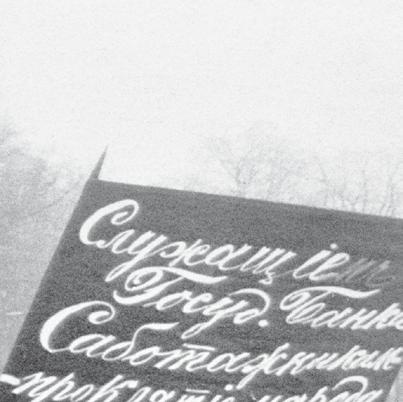 Служащіе
Госуд. Банка
Саботажникамъ
-проклятіе народа